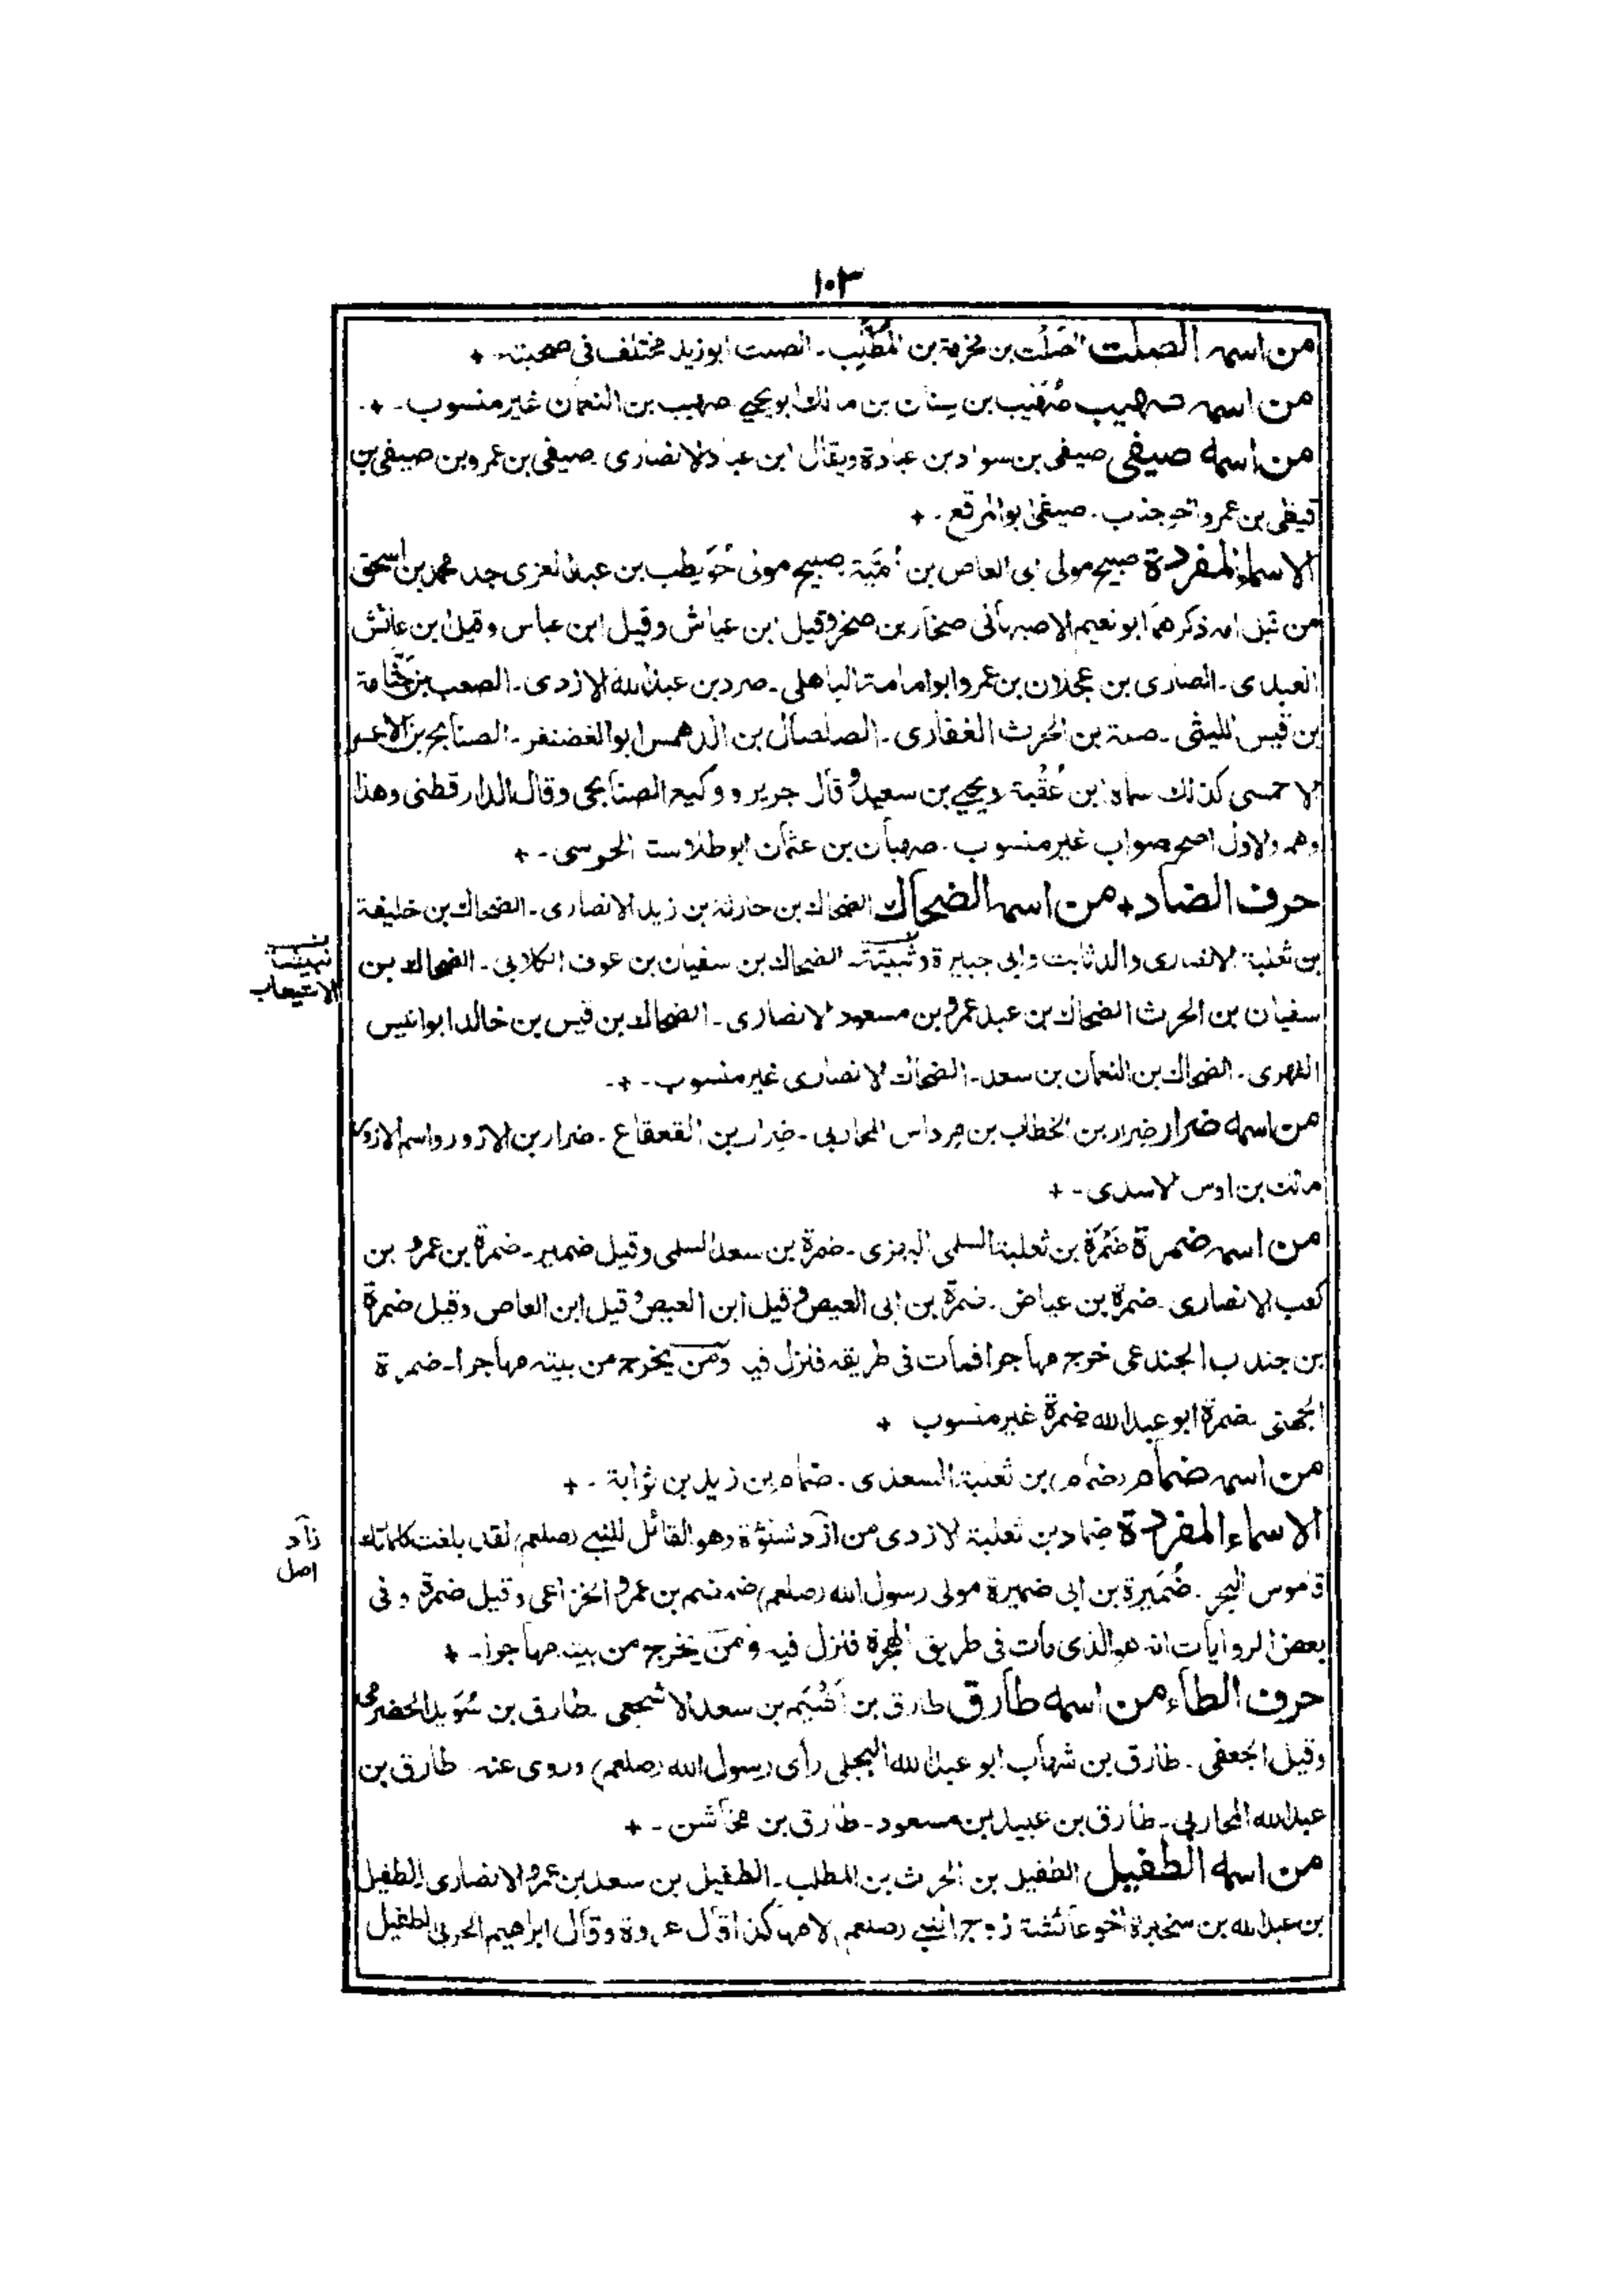 ١٠٣
من اسمه الصلت الصَلْت بن مخرمة بن المُطَّلِب ـ الصلت ابو زيد مختلف فى صحبته ـ +
من اسمه صهيب صُهَيب بن سِنَان بن مالك ابو يحيى صهيب بن النعمان غير منسوب ـ + ـ
من اسمه صيفى صيفى بن سواد بن عبادة ويقال ابن عباد الانصارى صيفى بن عمرو بن صيفى بن
قيظى بن عمرو اخو جذب ـ صيفى ابو المرقع ـ +
الاسماء المفردة صبيح مولى ابى العاص بن اُمَيَّة صبيح مولى حُوَيطب بن عبد العزى جد محمد بن اسحق
من قبل امه ذكرهما ابو نعيم الاصبهانى صحار بن صخر وقيل ابن عياش وقيل ابن عباس وقيل ابن عائش
العبدى ـ الصارى بن عجلان بن عمرو ابو امامة الباهلى ـ صرد بن عبد الله الازدى ـ الصعب بن جَثَّامة
بن قيس الليثى ـ صمة بن الحرث الغفارى ـ الصلصال بن الدلهمس ابو الغضنفر ـ الصنابح بن الاعسر
الاحمسى كذلك سماه ابن عُقْبة ويحيى بن سعيد وقال جرير ووكيع الصنابحى وقال الدارقطنى وهذا
وهم والاول اصح صواب غير منسوب ـ صهبان بن عثمان ابو طلاست الحوسى ـ +
حرف الضاد + من اسمه الضحاك الضحاك بن حارثة بن زيد الانصارى ـ الضحاك بن خليفة
بن ثعلبة الانصارى والد ثابت وابى جبيرة وثُبَيْتَة ـ الضحاك بن سفيان بن عوف الكلابى ـ الضحاك بن
الاستيعاب
سفيان بن الحرث الضحاك بن عبد عمرو بن مسعود الانصارى ـ الضحاك بن قيس بن خالد ابو انيس
الفهرى ـ الضحاك بن النعمان بن سعد ـ الضحاك الانصارى غير منسوب ـ + ـ
من اسمه ضرار ضِرار بن الخطاب بن مِرداس المحاربى ـ ضِرار بن القعقاع ـ ضرار بن الازور واسم الازور
مالك بن اوس الاسدى ـ +
من اسمه ضمرة ضَمْرَة بن ثعلبة السلمى البهزى ـ ضمرة بن سعد السلمى وقيل ضمير ـ ضمرة بن عمرو بن
كعب الانصارى ـ ضمرة بن عياض ـ ضمرة بن ابى العيص وقيل ابن العيص وقيل ابن العاص وقيل ضمرة
بن جندب الجندعى خرج مهاجرا فمات فى طريقه فنزل فيه ومن يخرج من بيته مهاجرا ـ ضمرة
الجهنى ـ ضمرة ابو عبد الله ضمرة غير منسوب +
من اسمه ضمام (ضمام) بن ثعلبة السعدى ـ ضمام بن زيد بن ثوابة ـ +
الاسماء المفردة ضماد بن ثعلبة الازدى من ازد شنؤة وهو القائل للنبى (صلعم) لقد بلغت كلماتك
زاد
اصل
قاموس البحر ـ ضُمَيرة بن ابى ضميرة مولى رسول الله (صلعم) ضمضم بن عمرو الخزاعى وقيل ضمرة وفى
بعض الروايات انه هو الذى مات فى طريق الهجرة فنزل فيه وَمَنْ يخرج من بيته مهاجرا ـ +
حرف الطاء من اسمه طارق طارق بن اَشْيَم بن سعد الاشجعى ـ طارق بن سُوَيد الحضرمى
وقيل الجعفى ـ طارق بن شهاب ابو عبد الله البجلى رأى رسول الله (صلعم) وروى عنه طارق بن
عبد الله المحاربى ـ طارق بن عبيد بن مسعود ـ طارق بن مخاشن ـ +
من اسمه الطفيل الطفيل بن الحرث بن المطلب ـ الطفيل بن سعد بن عمرو الانصارى الطفيل
بن عبد الله بن سخبرة اخو عائشة زوج النبى (صلعم) لامها كذا قال عروة وقال ابراهيم الحربى الطفيل